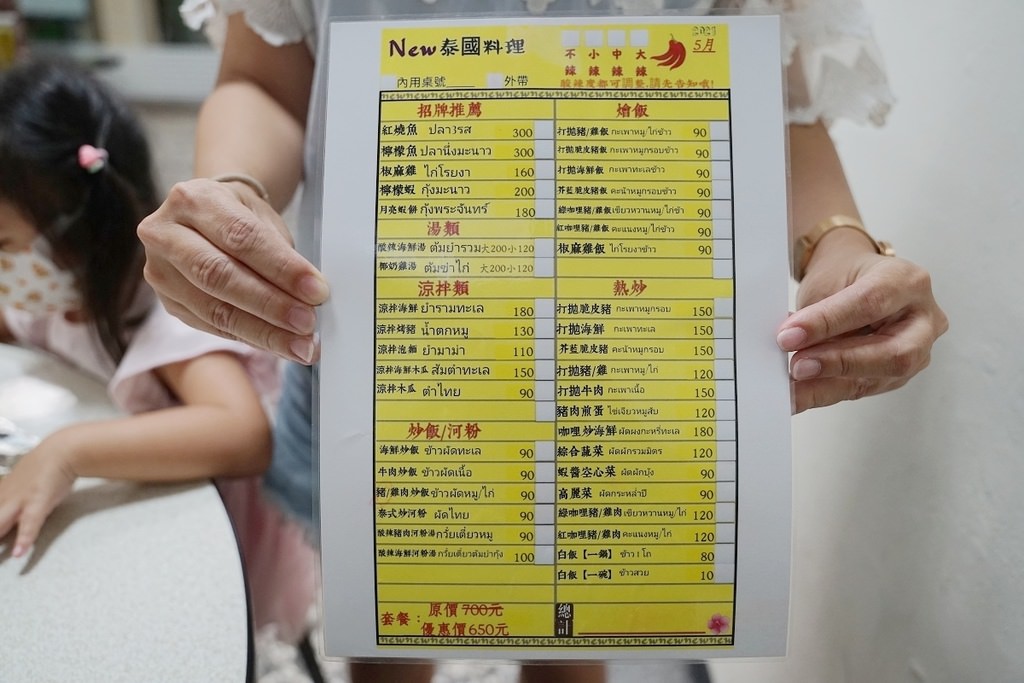 New泰國料理
不辣 小辣 中辣 大辣
2021
5月
內用桌號 外帶
酸辣度都可調整,請先告知哦!
招牌推薦
紅燒魚 ปลา3รส 300
檸檬魚 ปลานึ่งมะนาว 300
椒麻雞 ไก่โรยงา 160
檸檬蝦 กุ้งมะนาว 200
月亮蝦餅 กุ้งพระจันทร์ 180
湯類
酸辣海鮮湯 ต้มยำรวม 大200小120
椰奶雞湯 ต้มข่าไก่ 大200小120
涼拌類
涼拌海鮮 ยำรามทะเล 180
涼拌烤豬 น้ำตกหมู 130
涼拌泡麵 ยำมาม่า 110
涼拌海鮮木瓜 ส้มตำทะเล 150
涼拌木瓜 ตำไทย 90
炒飯/河粉
海鮮炒飯 ข้าวผัดทะเล 90
牛肉炒飯 ข้าวผัดเนื้อ 90
豬/雞肉炒飯 ข้าวผัดหมู/ไก่ 90
泰式炒河粉 ผัดไทย 90
酸辣豬肉河粉湯 กวั๋ยเตี๋ยวหมู 90
酸辣海鮮河粉湯 กวั๋ยเตี๋ยวต้มยำกุ้ง 100
套餐:原價700元
優惠價650元
燴飯
打拋豬/雞飯 กะเพาหมู/ไก่ข้าว 90
打拋脆皮豬飯 กะเพาหมูกรอบข้าว 90
打拋海鮮飯 กะเพาทะเลข้าว 90
芥藍脆皮豬飯 คะน้าหมูกรอบข้าว 90
綠咖哩豬/雞飯 เขียวหวานหมู/ไก่ข้า 90
紅咖哩豬/雞飯 คะแนงหมู/ไก่ข้าว 90
椒麻雞飯 ไก่โรยงาข้าว 90
熱炒
打拋脆皮豬 กะเพาหมูกรอบ 150
打拋海鮮 กะเพาทะเล 150
芥藍脆皮豬 คะน้าหมูกรอบ 150
打拋豬/雞 กะเพาหมู/ไก่ 120
打拋牛肉 กะเพาเนื้อ 150
豬肉煎蛋 ไข่เจียวหมูสับ 120
咖哩炒海鮮 ผัดผงกะหรี่ทะเล 180
綜合蔬菜 ผัดผักรวมมิตร 120
蝦醬空心菜 ผัดผักบุ้ง 90
高麗菜 ผัดกระหล่ำปี 90
綠咖哩豬/雞肉 เขียวหวานหมู/ไก่ 120
紅咖哩豬/雞肉 คะแนงหมู/ไก่ 120
白飯【一鍋】 ข้าว1โถ 80
白飯【一碗】 ข้าวสวย 10
總計